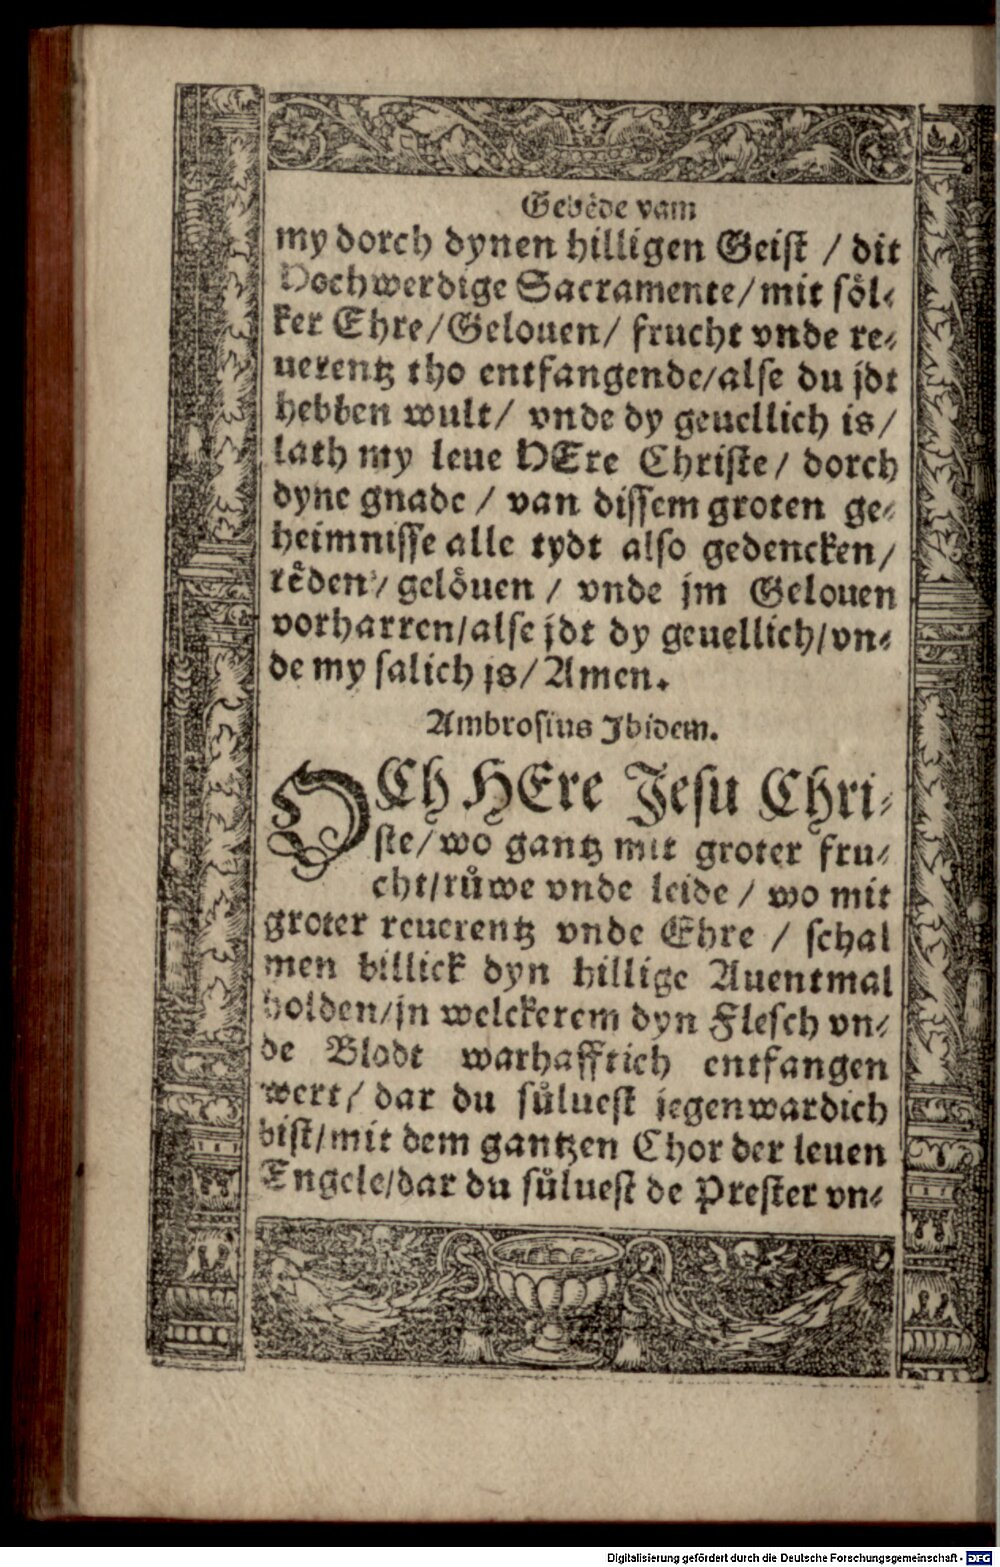 Gebêde vam
my dorch dynen hilligen Geist / dit
Hochwerdige Sacramente/ mit söl⸗
ker Ehre/Gelouen/ frucht vnde re⸗
uerentz tho entfangende/alse du jdt
hebben wult/ vnde dy geuellich is/
lath my leue HEre Christe/ dorch
dyne gnade / van dissem groten ge⸗
heimnisse alle tydt also gedencken/
rêden/ gelöuen / vnde jm Gelouen
vorharren/alse jdt dy geuellich/vn⸗
de my salich js/ Amen.
Ambrosius Jbidem.
OCh HEre Jesu Chri⸗
ste/ wo gantz mit groter fru⸗
cht/růwe vnde leide / wo mit
groter reuerentz vnde Ehre / schal
men billick dyn hillige Auentmal
holden/jn welckerem dyn Flesch vn⸗
de Blodt warhafftich entfangen
wert/ dar du sůluest jegenwardich
bist/mit dem gantzen Chor der leuen
Engele/dar du sůluest de Prester vn⸗
Digitalisierung gefördert durch die Deutsche Forschungsgemeinschaft - DFG